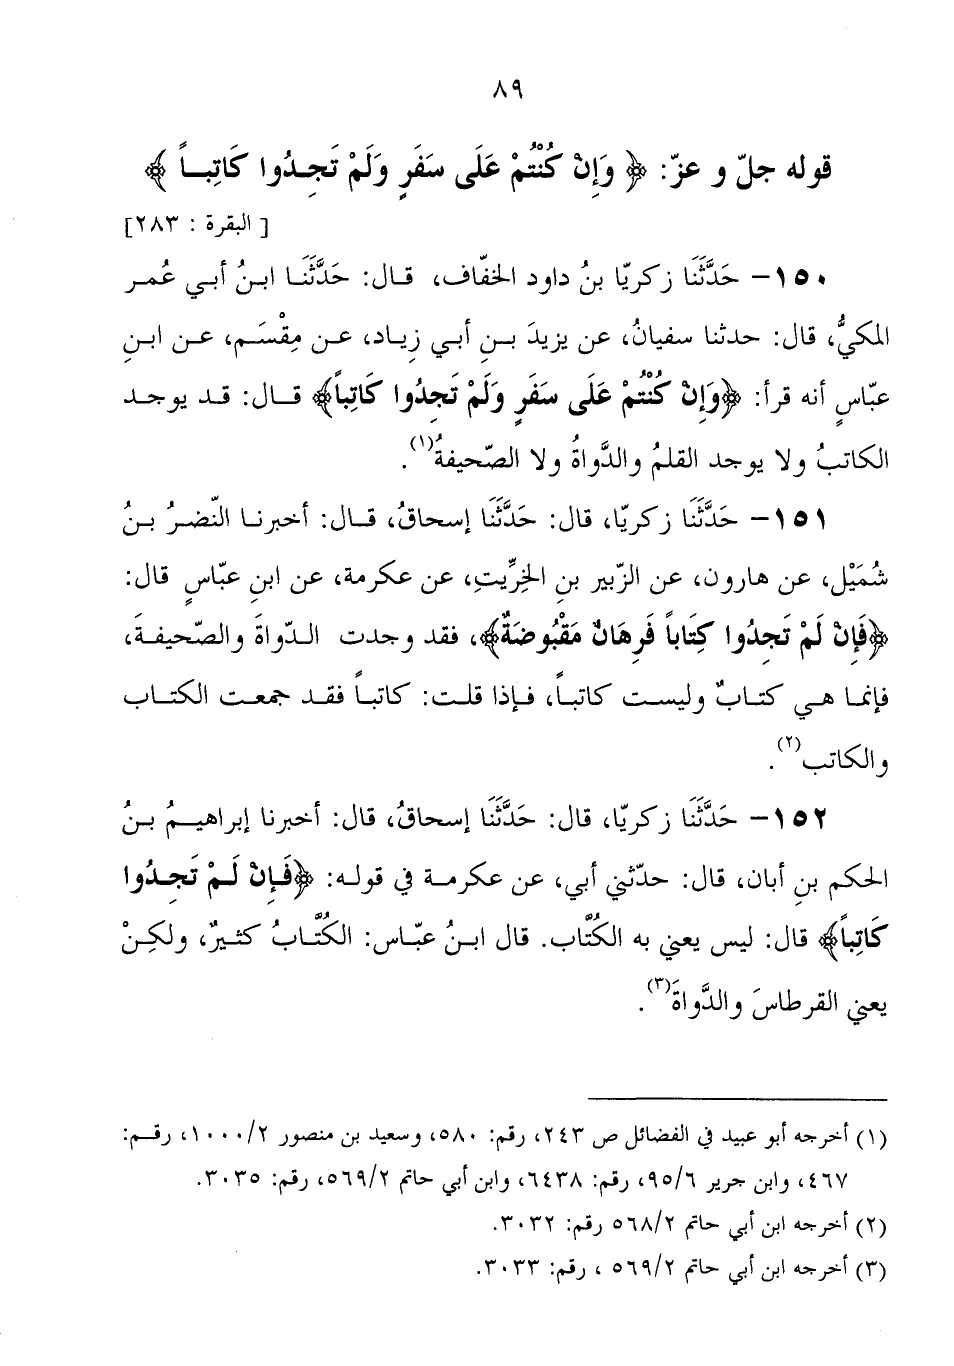 ٨٩
قوله جلّ و عزّ: ﴿ وَإِنْ كُنْتُمْ عَلَى سَفَرٍ وَلَمْ تَجِدُوا كَاتِبـاً ﴾
[ البقرة : ٢٨٣]
١٥٠- حَدَّثَنَا زكريّا بنُ داود الخفّاف، قـال: حَدَّثَنَـا ابـنُ أبي عُمـر
المكيُّ، قال: حدثنا سفيانُ، عن يزيدَ بـنِ أبـي زيـاد، عـن مِقْسَـم، عـن ابـنِ
عبّاسٍ أنه قرأ: ﴿وَإِنْ كُنْتُمْ عَلَى سَفَرٍ وَلَمْ تَجِدُوا كَاتِباً﴾ قـال: قـد يوجـد
الكاتبُ ولا يوجد القلمُ والدَّواةُ ولا الصّحيفةُ(١).
١٥١- حَدَّثَنَا زكريّا، قال: حَدَّثَنَا إسحاقُ، قـال: أخبرنـا النّضرُ بـنُ
شُمَيْل، عن هارون، عن الزّبير بنِ الخِرِّيتِ، عن عكرمة، عن ابنِ عبّاسٍ قال:
﴿فَإِنْ لَمْ تَجِدُوا كِتَاباً فَرِهَانٌ مَقْبُوضَةٌ﴾، فقد وجدت الـدّواةَ والصّحيفـةَ،
فإنما هـي كتـابٌ وليسـت كاتبـاً، فـإذا قلـت: كاتبـاً فقـد جمعـت الكتـاب
والكاتب(٢).
١٥٢- حَدَّثَنَا زكريّا، قال: حَدَّثَنَا إسحاقُ، قال: أخبرنا إبراهيـمُ بـنُ
الحكم بنِ أبان، قال: حدّثني أبي، عن عكرمـة في قولـه: ﴿فَـإِنْ لَـمْ تَجـِدُوا
كَاتِباً﴾ قال: ليس يعني به الكُتَّاب. قال ابـنُ عبّـاس: الكُتَّـابُ كثـيرٌ، ولكِـنْ
يعني القرطاسَ والدَّواةَ(٣).
(١) أخرجه أبو عبيد في الفضائل ص ٢٤٣، رقم: ٥٨٠، وسعيد بن منصور ١٠٠٠/٢، رقـم:
٤٦٧، وابن جرير ٩٥/٦، رقم: ٦٤٣٨، وابن أبي حاتم ٥٦٩/٢، رقم: ٣٠٣٥.
(٢) أخرجه ابن أبي حاتم ٥٦٨/٢ رقم: ٣٠٣٢.
(٣) أخرجه ابن أبي حاتم ٥٦٩/٢ ، رقم: ٣٠٣٣.